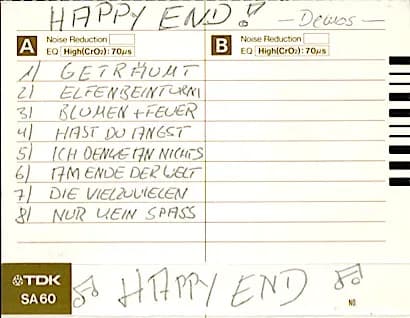 HAPPY END!
— DEMOS —
A Noise Reduction
EQ High(CrO₂): 70µs
B Noise Reduction
EQ High(CrO₂): 70µs
1) GETRÄUMT
2) ELFENBEINTURM
3) BLUMEN + FEUER
4) HAST DU ANGST
5) ICH DENKE AN NICHTS
6) AM ENDE DER WELT
7) DIE VIELZUVIELEN
8) NUR KEIN SPASS
TDK
SA60
HAPPY END
NO